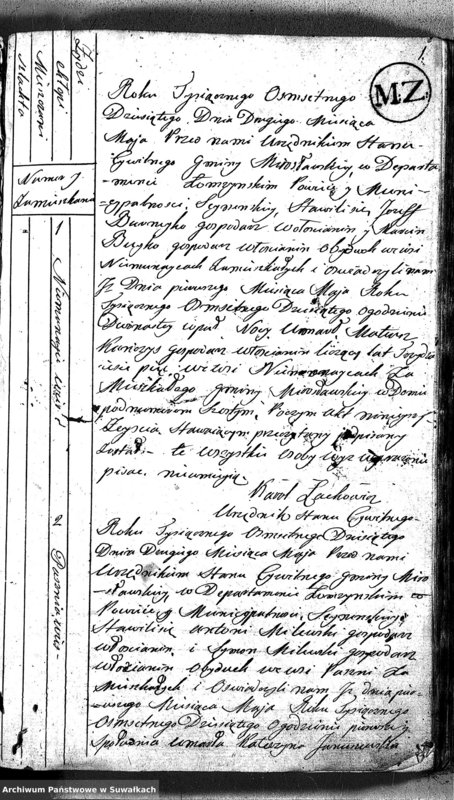 1.
MZ.
Żydzi
Chłopi
Mieszczanie
Szlachta
Numer y
Zamieszkanie
1 Niemonajcie wieś
2 Parnie wieś
Roku Tysiącznego Osmsetnego
Dziesiątego, Dnia Drugiego Miesiąca
Maja Przed nami Urzędnikiem Stanu
Cywilnego Gminy Mirosławskiey, w Departa
mencie Łomzynskim Powiecie y Muni-
=cypalnosci Seynenskiey, Stawili się Jozeff
gospodarz włoscianin y Marcin
Buyko gospodarz włoscianin Obydwa we wsi
Niemonaycach Zamieszkałych i oswiadczyli nam
Jz Dnia pierwszego Miesiąca Maja Roku
Tysiącznego Osmsetnego Dziesiątego o godzinie
Dwunastey w puł Nocy Umarł Mateusz
gospodarz włoscianin liczący lat
pięc we wsi Niemonaycach Za
Mieszkałego Gminy Mirosławskiey w Domu
pod numerem Szostym, Poczym Akt ninieyszy
Zeyscia Stawaiącym przeczytany podpisany
Został te wszystkie osoby wyz wyrazone
pisac nieumieią
Karol Zachowicz
Urzędnik Stanu Cywilnego
Roku Tysiącznego Osmsetnego Dziesiątego
Dnia Drugiego Miesiąca Maja Przed nami
Urzędnikiem Stanu Cywilnego Gminy Miro
=sławskiey w Departamencie Łomzynskim w
Powiecie y Municypalnosci Seynenskiey
Stawili się Antoni Milewski gospodarz
włoscianin, i Symon Milewski gospodarz
włoscianin Obydwch we wsi Parni Za
Mieszkałych i Oswiadczyli nam Jz dnia pier
wszego Miesiąca Maja Roku Tysiącznego
Osmsetnego Dziesiątego O godzinie pierwszey z
południa umarła Katarzyna Januszewska
Archiwum Państwowe w Suwałkach